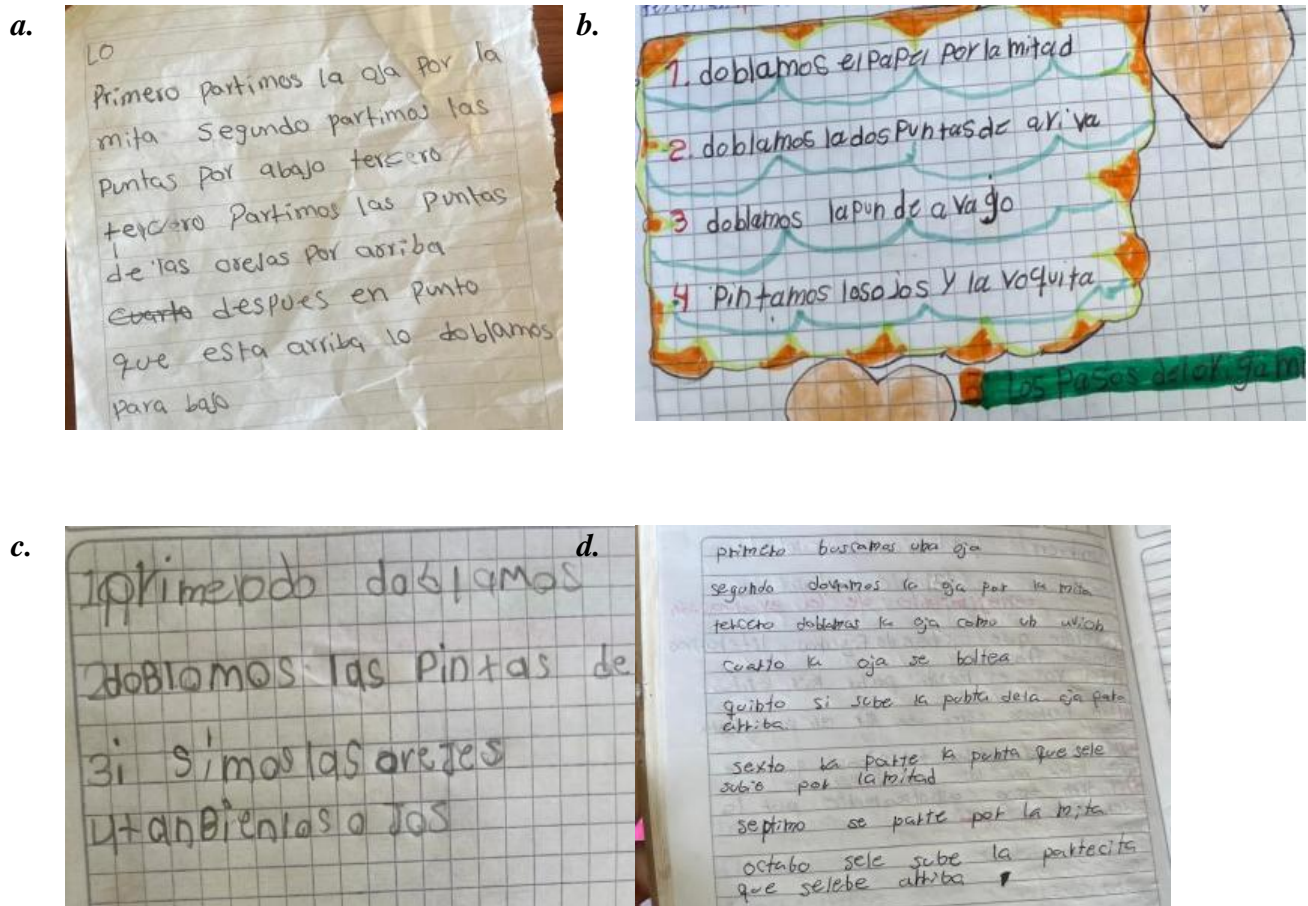 a.
LO
Primero partimos la oja por la
mita segundo partimos las
puntas por abajo tercero
tercero Partimos las puntas
de las orejas por aorriba
Cuarto despues en punto
que esta arriba lo doblamos
para bajo
b.
1. doblamos el papel por la mitad
2. doblamos la dos puntas de ariva
3 doblamos la pun de a vago
4 Pintamos los ojos y la voquita
Los Pasos del origami
c.
1 primerodo doblamos
2 doBlamos las pintas de
3 i simos las orejes
4 tanBien los o Jos
d.
primero buscamos una oja
segundo la oja por la mita
tercero doblamos la oja como un avion
cuarto la oja se boltea
quinto si sube la punta dela oja para
arriba.
sexto la parte la punta que sele
subio por la mitad
septimo se parte por la mita
octabo sele sube la partecita
que selebe arriba